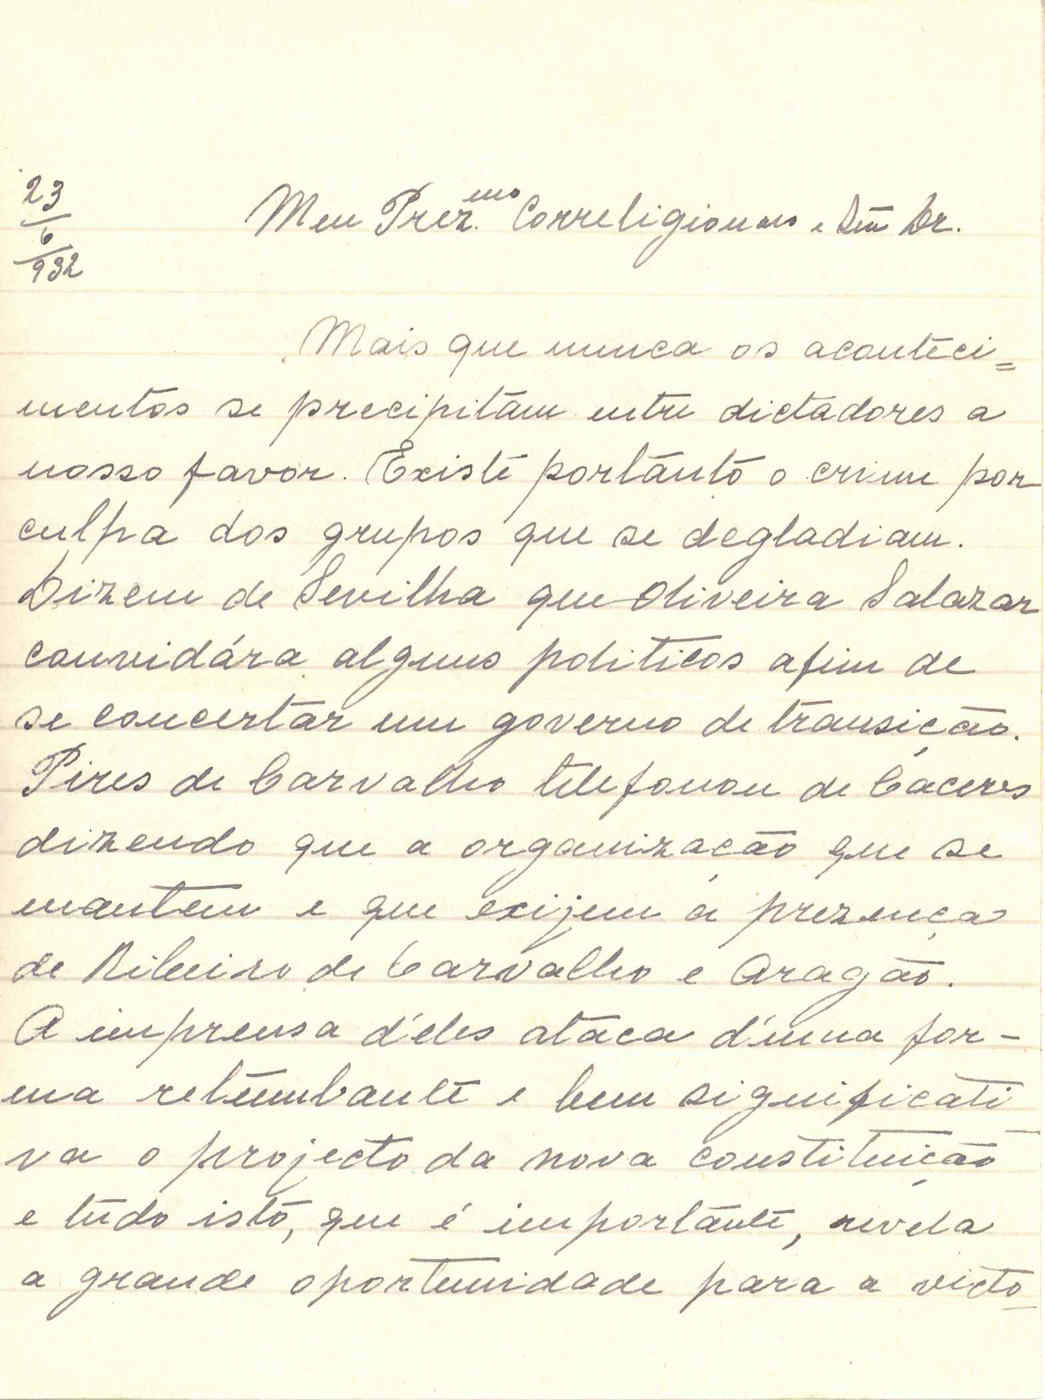 23
6
932
Meu Prez.mo Correligionario e Sñr Dr.
Mais que nunca os aconteci=
mentos se precipitam entre dictadores a
nosso favor. Existe portanto o crime por
culpa dos grupos que se degladiam.
Dizem de Sevilha que Oliveira Salazar
convidára alguns politicos afim de
se concertar um governo de transição.
Pires de Carvalho telefonou de Caceres
dizendo que a organização que se
mantem e que exijem a prezença
de Ribeiro de Carvalho e Aragão.
A imprensa d'eles ataca d'uma for-
ma retumbante e bem significati
va o projecto da nova constituição
e tudo isto, que é importante, revela
a grande oportunidade para a victo